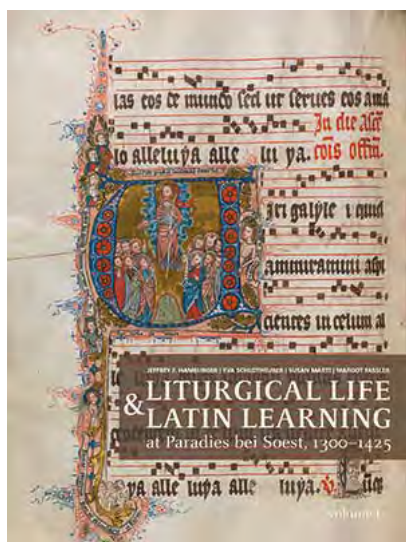 las eos de mundo sed ut serues eos a ma
In die ascē
lo alleluya alle lu ya. cōis offm.
iri galyle i quid
ammiramini aspi
cientes in celum al
JEFFREY F. HAMBURGER | EVA SCHLOTHEUBER | SUSAN MARTI | MARGOT FASSLER
LITURGICAL LIFE
& LATIN LEARNING
at Paradies bei Soest, 1300–1425
ya alle luya alle luya.
volume I